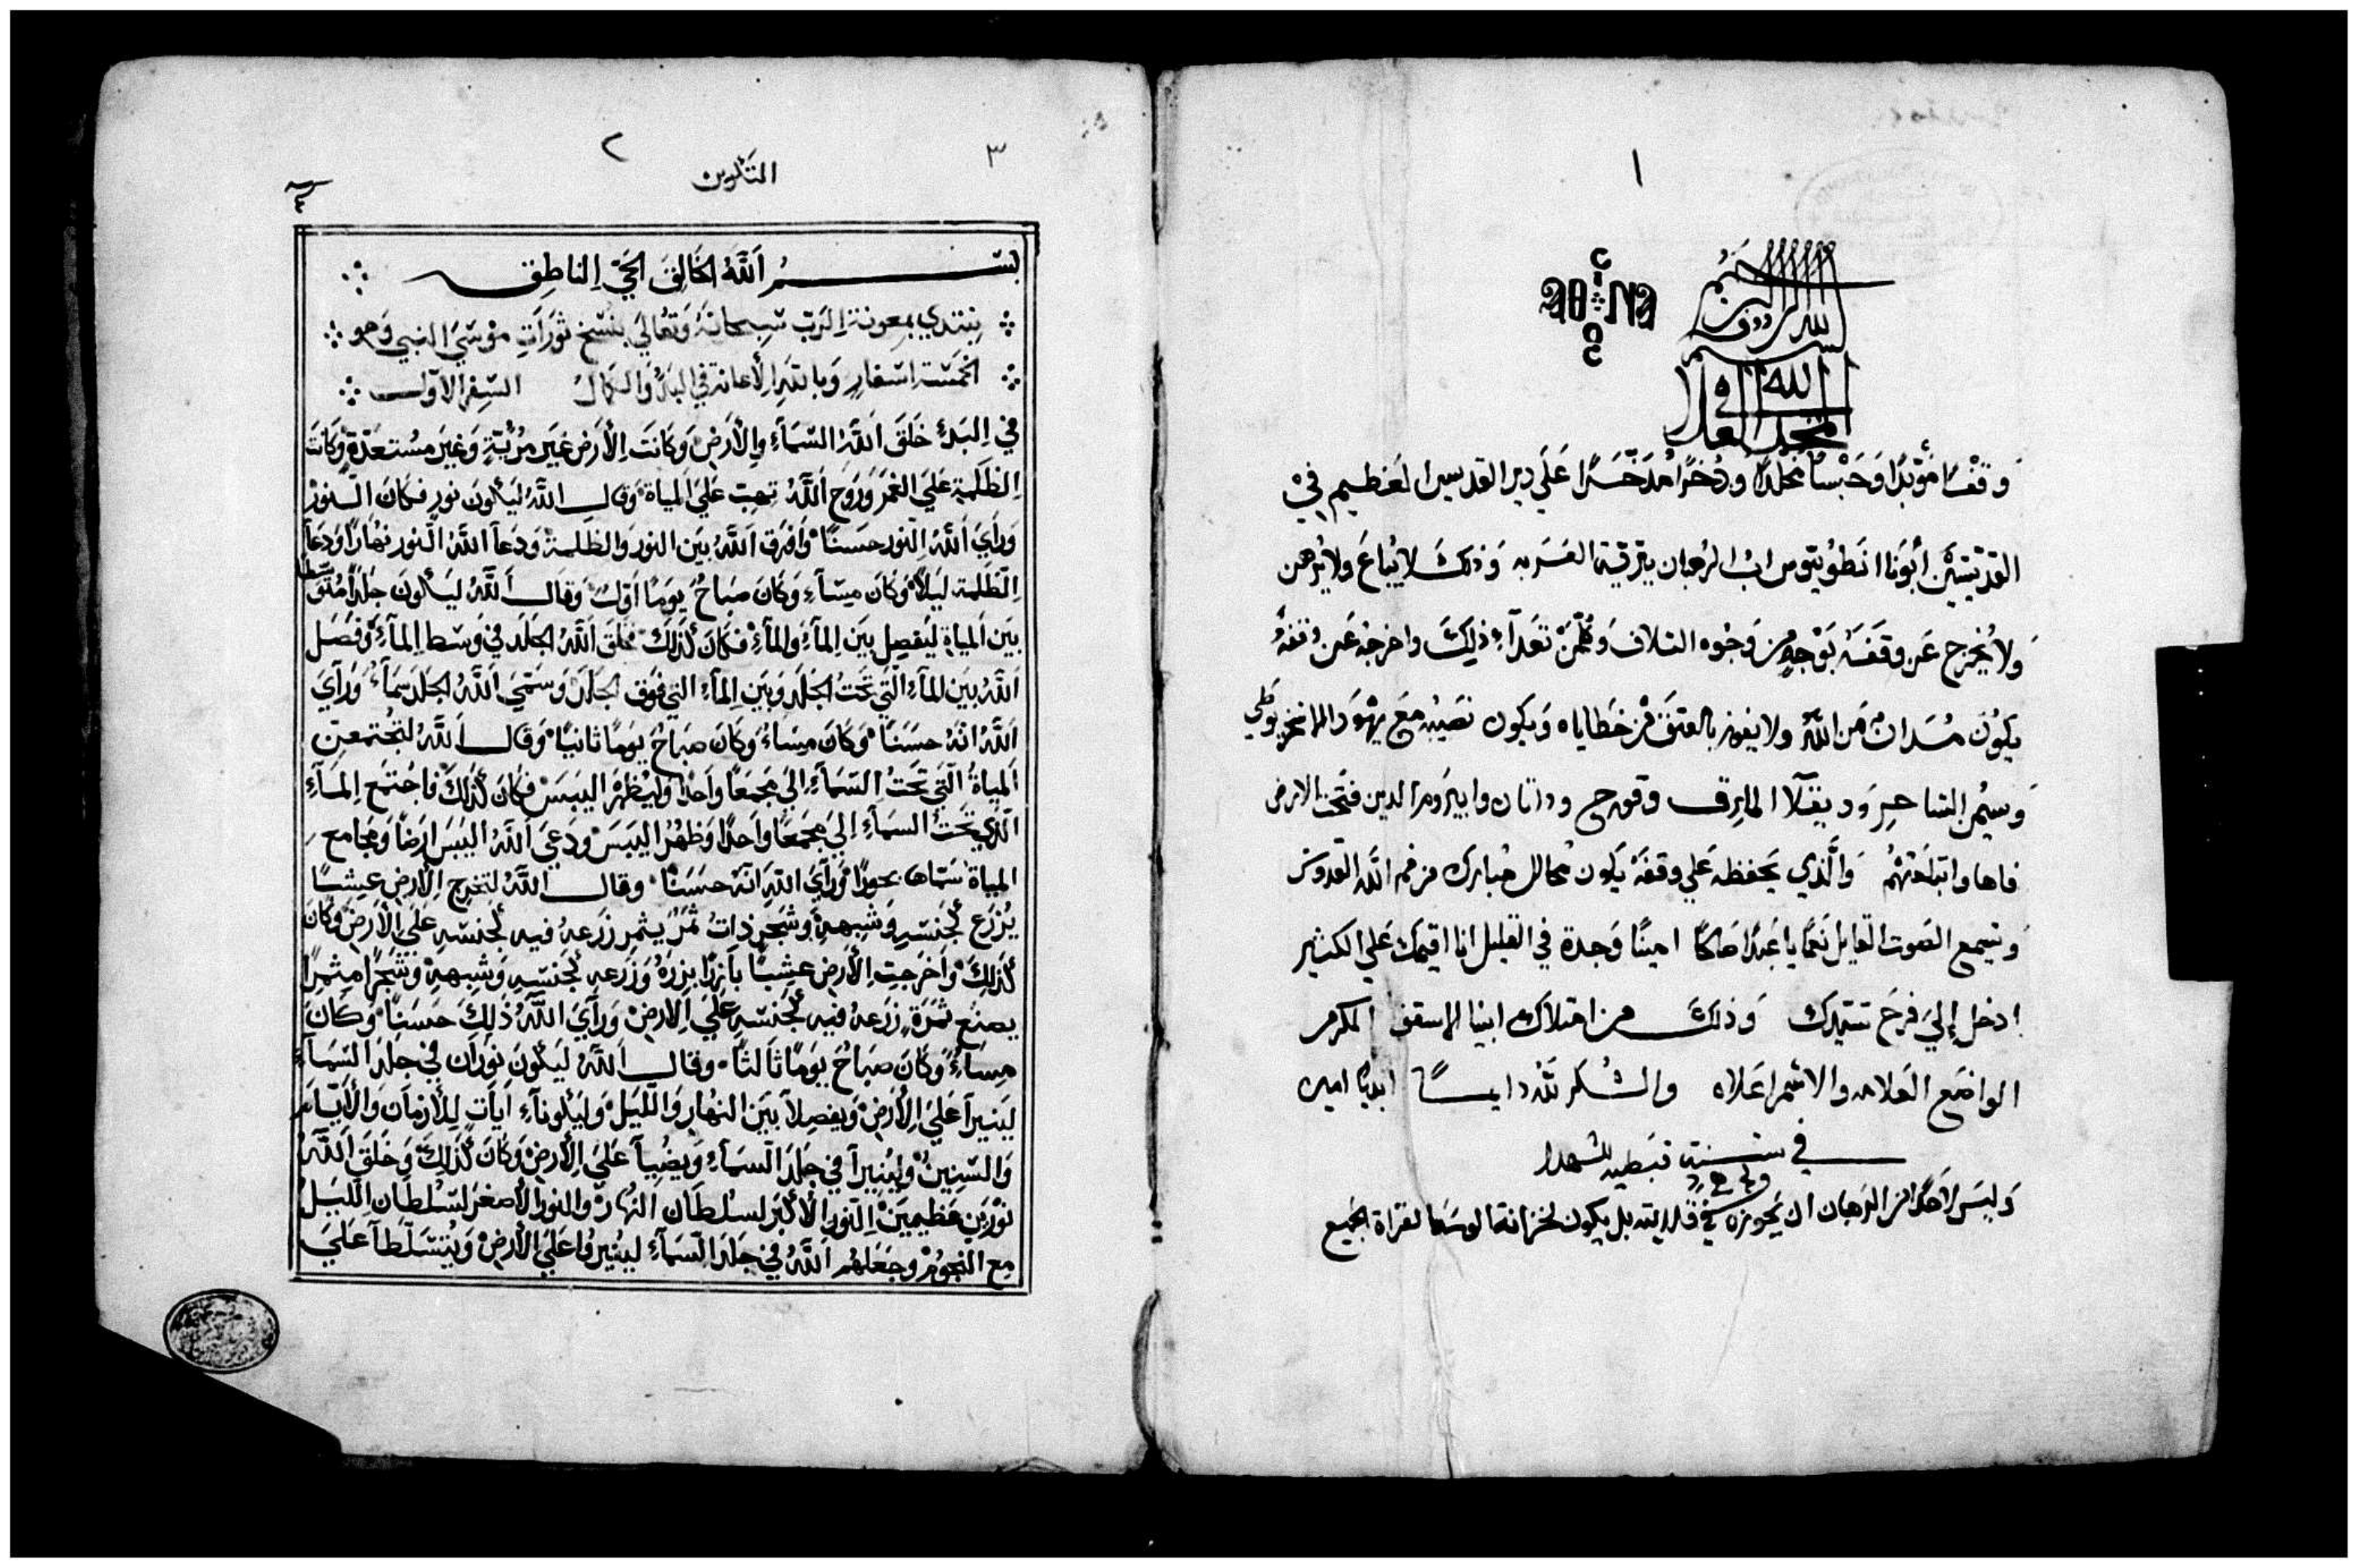 ١
بسم الله الرؤوف الرحيم
المجد لله في العلا
وقفًا مؤبدًا وحبسًا مخلدًا وذخرًا مدخرًا علي دير القديس العظيم في
القديسين أبونا انطونيوس اب الرهبان ببرية العربه وذلك لا يُباع ولا يُرهن
ولا يُخرج عن وقفه بوجه من وجوه التلاف وكلمن تعدآء ذلك واخرجه عن وقفه
يكون مُدان من الله ولا يفوز بالعتق من خطاياه ويكون نصيبه مع يهودا الاسخريوطي
وسيمن الساحر وديقلا المارق وقورح وداتان وابيروم الدين فتحت الارض
فاها وابتلعتهم والذي يحفظه علي وقفه يكون محالل مبارك من فم الله القدوس
وتسمع الصوت القايل نعمًا يا عبدًا صالحًا امينًا وجدة في القليل انا اقيمك علي الكثير
ادخل إلي فرح سيدك وذلك من امتلاك ابينا الاسقف المكرم
الواضع العلامه والاسم اعلاه والشكر لله دايمًا ابديًا امين
في سنة قبطيه للشهدا
وليس لاحد من الرهبان ان يحوزه في قلايته بل يكون لخزانة لقراة الجميع
٣
٢
التكوين
بسم اَللَّهُ الخَالِق الحَيّ الناطِق
نبتدي بمعونة الرَبّ سُبحانهُ وَتعَالي بنسْخ ثورَات موُسَي النبي وَهو
الخَمسَة اسْفار وَباللَّه الأعانة في البَدُ وَالكمَال السِفر الاَوّل
في البَدئ خَلَقَ اَللَّهُ السَّمَاَءِ والأرَض وَكانَت الأرَض غيَر مرُئيَّةٍ وَغيَر مسُتعَدّة وَكانَت
الظلمَةِ عَلي الغمَر وَروَح اَللَّهُ تهِبّ عَليَ المياة وَقال اَللَّهُ ليَكونَ نور فكانَ النورْ
وَرأيَ اَللَّهُ النور حسَنًا وَافرَق اَللَّهُ بيَن النور وَالظلمة وَدَعَا اَللَّهُ النور نهَارًا وَدَعَا
الظلَمة ليَلاً وَكانَ مسَاءِ وَكانَ صبَاحُ يومًا اوَلُ وَقال اَللَّهُ ليَكونَ جلَدًا مُتوسَطا
بيَن المياة ليَفصِل بيَن المآءِ والمآءِ فكانَ كذَلكَ فخلَق اَللَّهُ الجلَد في وسَط المآءِ وَفصَل
اَللَّهُ بيَن المآءِ التي تحَتُ الجلَد وَبيَن المآءِ التي فوَق الجلَد وَسَمّيَ اَللَّهُ الجلَد سَمَآءُ وَرَأيَ
اَللَّهُ انهُ حسَنًا وَكانَ مسِاءُ وَكانَ صبَاحُ يومًا ثانيًا وَقال اَللَّهُ لتجُتمعَ
المياةُ التَي تحَتُ السّمآءِ اليَ مجَمعًا واَحدًا وَليُظهر اليبَسْ فكانَ كذَلكَ فاجُتمع المآءِ
الذي تحَتُ السمَآءِ اليَ مجَمعًا واَحدًا وَظهُر اليبَسَ وَدعَيَ اَللَّهُ اليبَس ارَضًا وَمجَامع
المياة سَمّاها بحورًا وَرآيَ اللهِ انهُ حسَنًا وَقال اَللَّهُ لتخرج الأرَض عيشبًا
يُزرَع لجنسَهِ وَشبههِ وَشجَر ذاتُ ثمَر يثمر زَرعهُ فيه لجنسَهِ عَلي الأرض وَكانَ
كذَلكَ وَاخرَجت الأرَض عيشبًا باَزرًا بزرَهُ وَزَرعه لجنسَهِ وَشبههِ وَشجَرًا مثمرًا
يصنَع ثمَرَة زَرعهُ فيه لجنسَهِ عَليَ الارض وَرآيَ اَللَّهُ ذَلكَ حسَنًا وَكانَ
مسِاءُ وَكانَ صبَاحُ يومًا ثالثًا وَقال اَللَّهُ ليَكونَ نورَان في جلَد السّمآءِ
لينيرآ عَليَ الأرَض وَيفصلاَ بيَن النهَار وَالليَل وَليكونآءِ آيات للأزمَان وَالأيام
وَالسّنين وَلينيرآ في جلَد السمآءِ وَيضيآ عَليَ الأرض وَكانَ كذَلكَ وَخلَق اَللَّهُ
نوُرَين عَظيمين النورَ الأكبَر لسُلطان النهَار وَالنور الأصغر لسُلطان الليَل
مع النجوُم وَجعلهُم اَللَّهُ في جلَد السّمآءِ لينيرُوا عَليَ الأرض وَيُتسَلطآ عَليَ